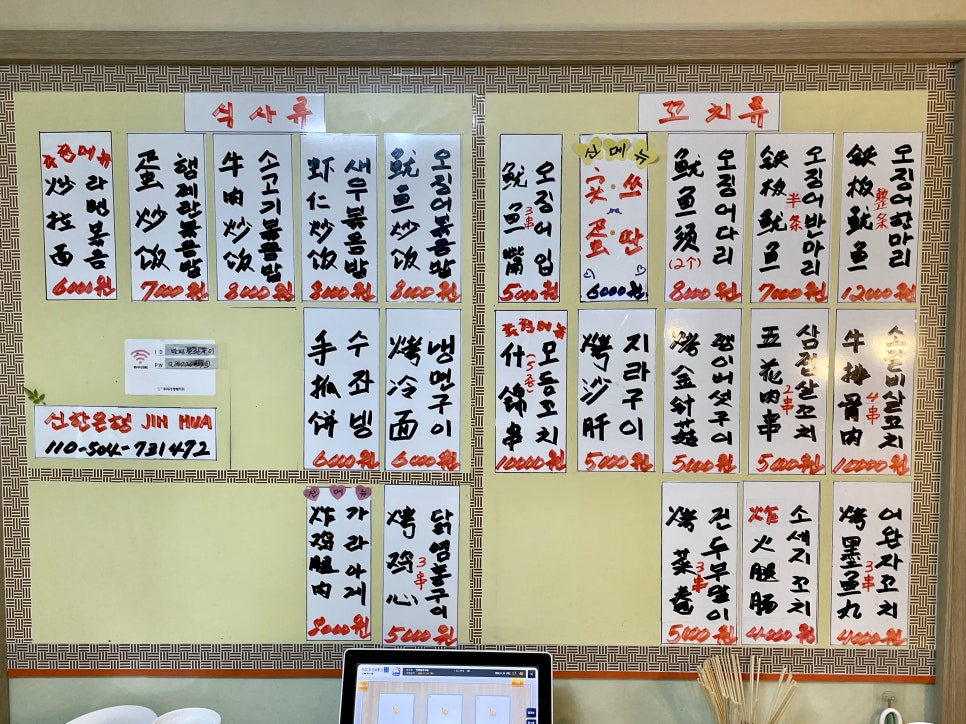 식사류
추천메뉴
라면볶음
炒拉面
6000원
햄계란볶음밥
蛋炒饭
7000원
소고기볶음밥
牛肉炒饭
8000원
새우볶음밥
虾仁炒饭
8000원
오징어볶음밥
鱿鱼炒饭
8000원
수좌빙
手抓饼
6000원
냉면구이
烤冷面
6000원
ID
PW
신한은행 JIN HUA
110-504-731472
신메뉴
가라아게
炸鸡腿肉
8000원
닭염통구이
烤鸡心
3串
5000원
꼬치류
오징어입
鱿鱼嘴
3串
5000원
신메뉴
쓰딴
实蛋
6000원
오징어다리
鱿鱼须
(2个)
8000원
오징어반마리
铁板鱿鱼
半条
7000원
오징어한마리
铁板鱿鱼
整条
12000원
추천메뉴
모듬꼬치
(5종)
什锦串
10000원
지라구이
烤沙肝
5000원
팽이버섯구이
烤金针菇
5000원
삼겹살꼬치
五花肉串
2串
5000원
소갈비살꼬치
牛排骨肉
4串
10000원
건두부말이
烤菜卷
3串
5000원
소세지꼬치
炸火腿肠
4000원
어완자꼬치
烤墨鱼丸
3串
4000원